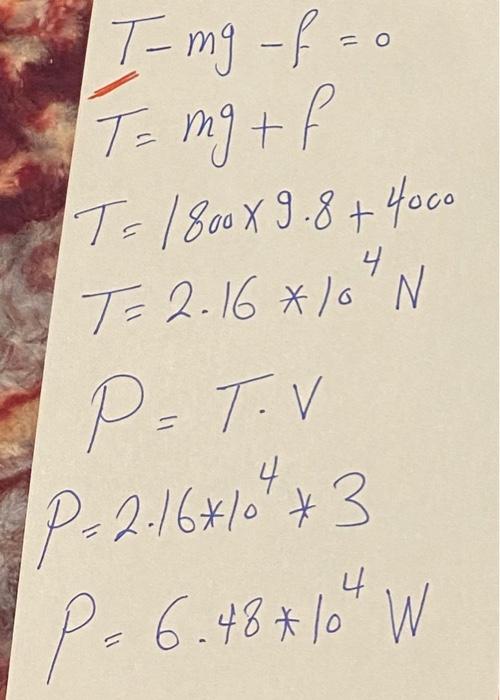 T - mg - f = 0
T = mg + f
T = 1800 x 9.8 + 4000
T = 2.16 * 10⁴ N
P = T . V
P = 2.16 * 10⁴ * 3
P = 6.48 * 10⁴ W